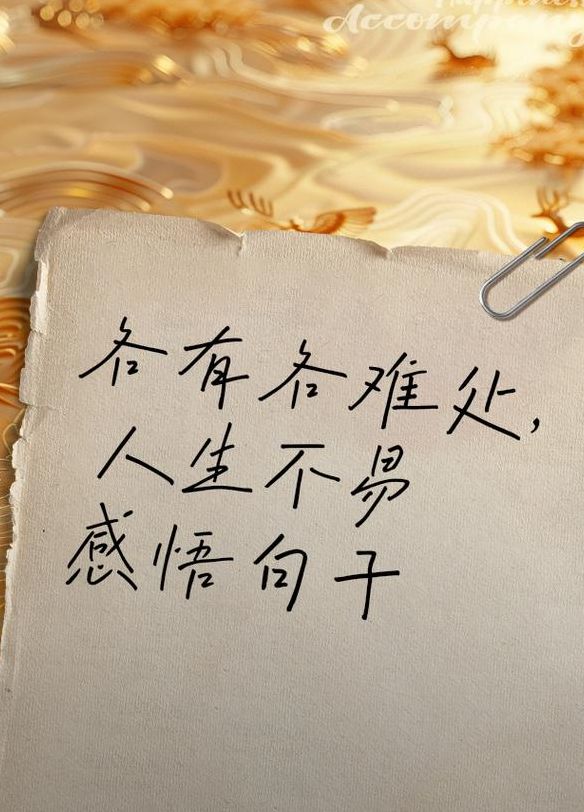 Accompany
各有各难处,
人生不易
感悟句子